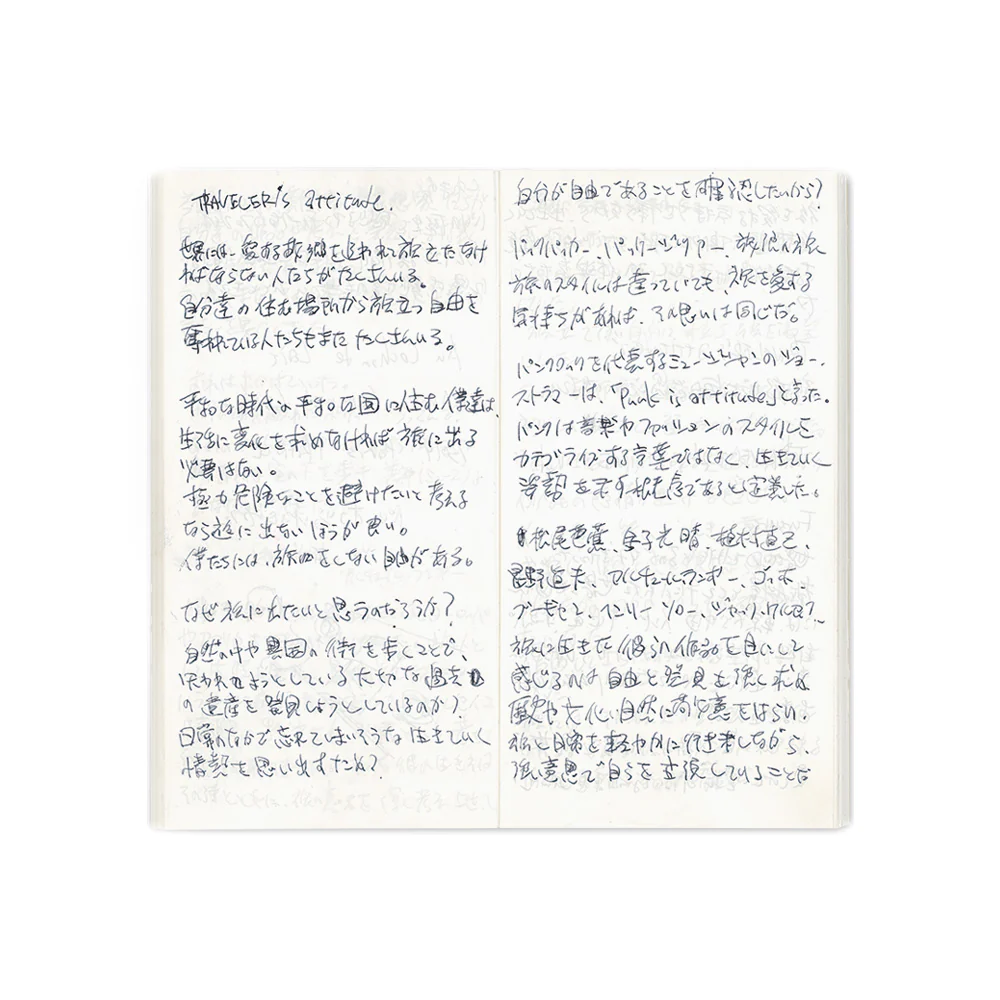 TRAVELER's attitude.
世界には、愛する故郷を追われて旅立たなけ
ればならない人たちがたくさんいる。
自分達の住む場所から旅立つ自由を
奪われている人たちもまたたくさんいる。
平和な時代の平和な国に住む僕達は、
生活に変化を求めなければ旅に出る
必要はない。
極力危険なことを避けたいと考える
なら旅に出ないほうが良い。
僕たちには、旅をしない自由がある。
なぜ旅に出たいと思うのだろうか?
自然の中や異国の街を歩くことで、
失われようとしている大切な過去
の遺産を発見しようとしているのか?
日常のなかで忘れてしまいそうな生きていく
情熱を思い出すため?
自分が自由であることを確認したいから?
バックパッカー、パッケージツアー、放浪の旅
旅のスタイルは違っていても、旅を愛する
気持ちがあれば、その思いは同じだ。
パンクロックを代表するミュージシャンのジョー・
ストラマーは、「Punk is attitude」と言った。
パンクは音楽やファッションのスタイルを
カテゴライズする言葉ではなく、生きていく
姿勢を示す概念であると定義した。
松尾芭蕉、金子光晴、植村直己、
星野道夫、アルチュール・ランボー、ゴッホ、
ブーゼヒン、ヘンリー・ソロー、ジャック・ケルアック、
旅に生きた彼らの作品を目にして
感じるのは自由と発見を強く求め
歴史や文化、自然に敬意をはらい、
旅と日常を軽やかに行き来しながら、
強い意思で自らを主張していることだ